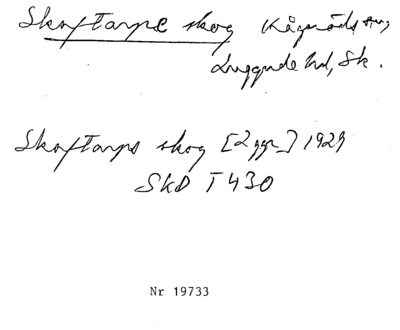 Skaftarps skog Kågeröds sn,
Luggude hd, Sk.
Skaftarps skog [2 ggr] 1929
SkD T430
Nr 19733